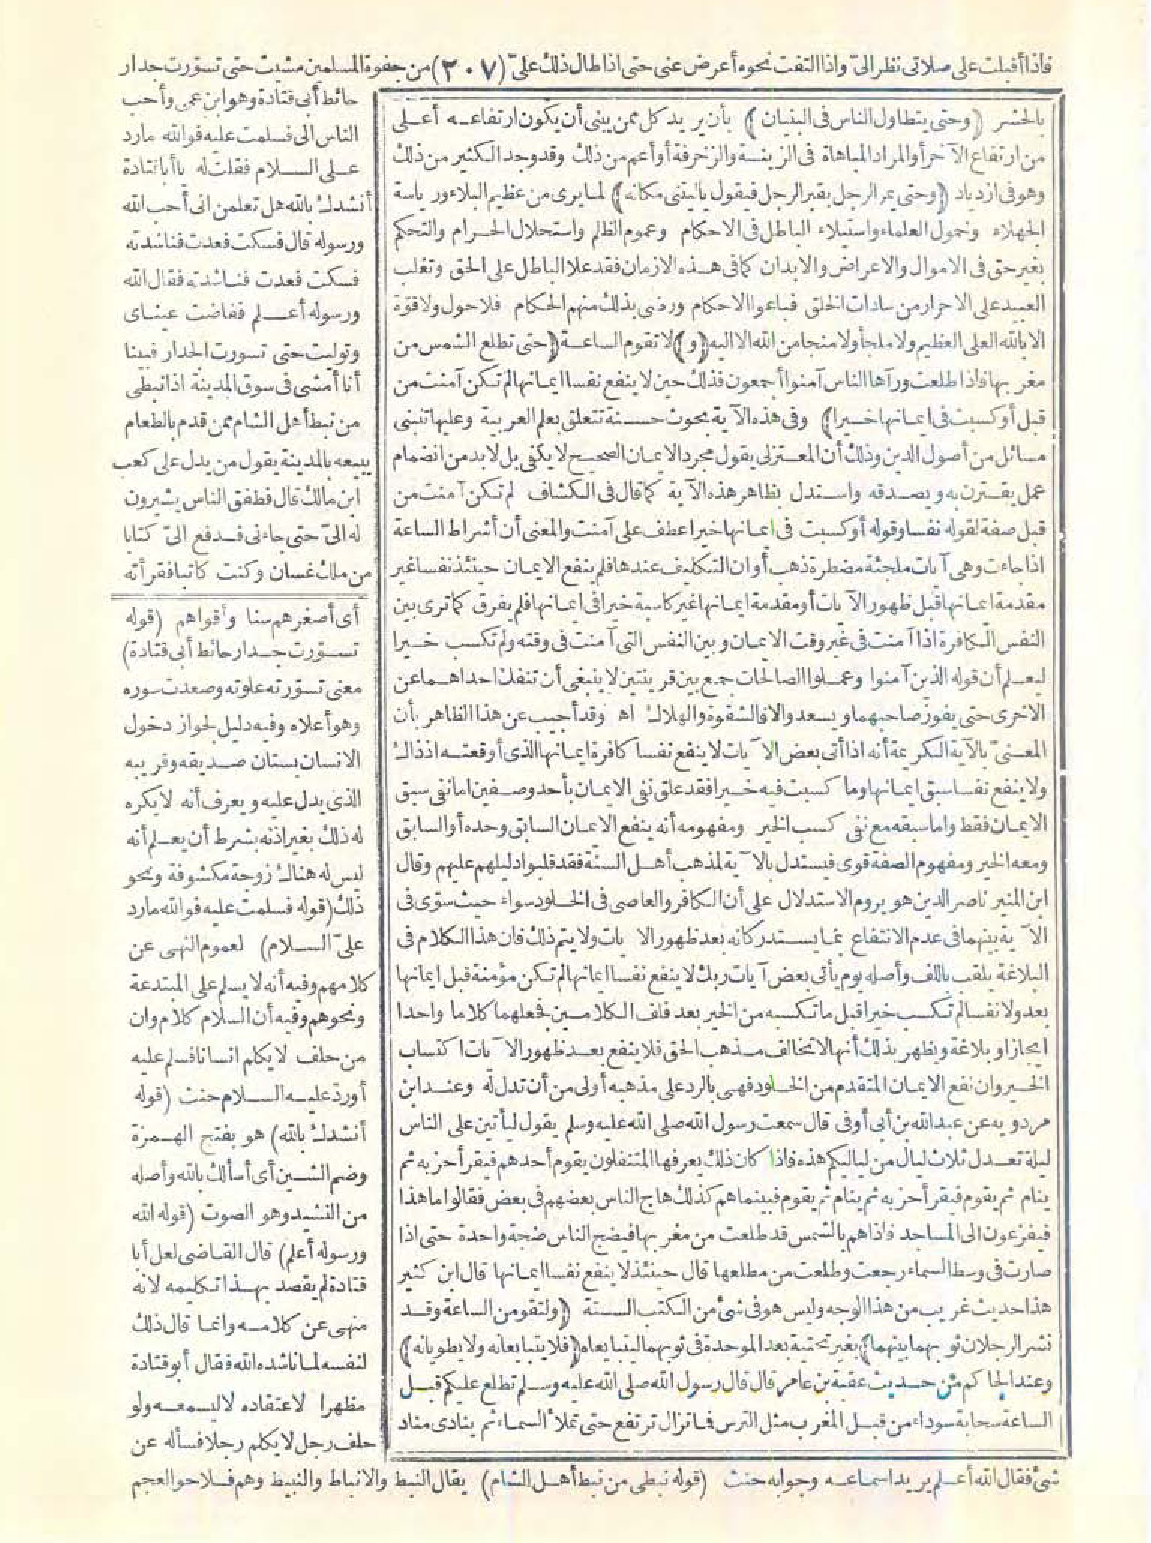 فاذا أقبلت على صلاتى نظر الىّ واذا التفت نحوه أعرض عنى حتى اذا طال ذلك علىّ (٢٠٧) من جفوة المسلمين مشيت حتى تسوّرت جدار
حائط أبى قتادة وهو ابن عمى وأحب
الناس الى فسلمت عليه فوالله مارد
على السلام فقلت له يا أبا قتادة
أنشدك بالله هل تعلمن انى أحب الله
ورسوله قال فسكت فعدت فناشدته
فسكت فعدت فناشدته فقال الله
ورسوله أعلم ففاضت عيناى
وتوليت حتى تسورت الجدار فبينا
أنا أمشى فى سوق المدينة اذا نبطى
من نبط أهل الشام ممن قدم بالطعام
يبيعه بالمدينة يقول من يدل على كعب
ابن مالك قال فطفق الناس يشيرون
له الىّ حتى جاءنى فدفع الىّ كتابا
من ملك غسان وكنت كاتبا فقرأته
أى أصغرهم سنا وأقواهم (قوله
تسوّرت جدار حائط أبى قتادة)
معنى تسوّرته علوته وصعدت سوره
وهو أعلاه وفيه دليل لجواز دخول
الانسان بستان صديقه وقريبه
الذى يدل عليه ويعرف أنه لا يكره
له ذلك بغير اذنه بشرط أن يعلم أنه
ليس له هناك زوجة مكشوفة ونحو
ذلك (قوله فسلمت عليه فوالله مارد
علىّ السلام) لعموم النهى عن
كلامهم وفيه أنه لا يسلم على المبتدعة
ونحوهم وفيه أن السلام كلام وان
من حلف لا يكلم انسانا فسلم عليه
أو ردّ عليه السلام حنث (قوله
أنشدك بالله) هو بفتح الهمزة
وضم الشين أى أسألك بالله وأصله
من النشيد وهو الصوت (قوله الله
ورسوله أعلم) قال القاضى لعل أبا
قتادة لم يقصد بهذا تكليمه لانه
منهى عن كلامه وانما قال ذلك
لنفسه لما ناشده الله فقال أبو قتادة
مظهرا لاعتقاده لا ليسمعه ولو
حلف رجل لا يكلم رجلا فسأله عن
بالحشر (وحتى يتطاول الناس فى البنيان) بأن يريد كل ممن يبنى أن يكون ارتفاعه أعلى
من ارتفاع الآخر أو المراد المباهاة فى الزينة والزخرفة أو أعم من ذلك وقد وجد الكثير من ذلك
وهو فى ازدياد (وحتى يمر الرجل بقبر الرجل فيقول يا ليتنى مكانه) لما يرى من عظيم البلاء ورياسة
الجهلاء وخمول العلماء واستيلاء الباطل فى الاحكام وعموم الظلم واستحلال الحرام والتحكم
بغير حق فى الاموال والاعراض والابدان كما فى هذه الازمان فقد علا الباطل على الحق وتغلب
العبيد على الاحرار من سادات الخلق فباعوا الاحكام ورضى بذلك منهم الحكام فلا حول ولا قوة
الا بالله العلى العظيم ولا ملجأ ولا منجا من الله الا اليه (و) لا تقوم الساعة (حتى تطلع الشمس من
مغربها فاذا طلعت ورآها الناس آمنوا أجمعون فذلك حين لا ينفع نفسا ايمانها لم تكن آمنت من
قبل أو كسبت فى ايمانها خيرا) وفى هذه الآية بحوث حسنة تتعلق بعلم العربية وعليها تنبنى
مسائل من أصول الدين وذلك أن المعتزلى يقول مجرد الايمان الصحيح لا يكفى بل لا بد من انضمام
عمل يقترن به ويصدقه واستدل بظاهر هذه الآية كما قال فى الكشاف لم تكن آمنت من
قبل صفة لقوله نفسا وقوله أو كسبت فى ايمانها خيرا عطف على آمنت والمعنى أن أشراط الساعة
اذا جاءت وهى آيات ملجئة مضطرة ذهب أوان التكليف عندها فلم ينفع الايمان حينئذ نفسا غير
مقدمة ايمانها قبل ظهور الآيات أو مقدمة ايمانها غير كاسبة خيرا فى ايمانها فلم يفرق كما ترى بين
النفس الكافرة اذا آمنت فى غير وقت الايمان وبين النفس التى آمنت فى وقته ولم تكسب خيرا
ليعلم أن قوله الذين آمنوا وعملوا الصالحات جمع بين قرينتين لا ينبغى أن تنفك احداهما عن
الاخرى حتى يفوز صاحبهما ويسعد والا فالشقوة والهلاك اه وقد أجيب عن هذا الظاهر بأن
المعنىّ بالآية الكريمة أنه اذا أتى بعض الآيات لا ينفع نفسا كافرة ايمانها الذى أوقعته اذ ذاك
ولا ينفع نفسا سبق ايمانها وما كسبت فيه خيرا فقد علق نفى الايمان بأحد وصفين اما نفى سبق
الايمان فقط واما سبقه مع نفى كسب الخير ومفهومه أنه ينفع الايمان السابق وحده أو السابق
ومعه الخير ومفهوم الصفة قوى فيستدل بالآية لمذهب أهل السنة فقد قلبوا دليلهم عليهم وقال
ابن المنير ناصر الدين هو يروم الاستدلال على أن الكافر والعاصى فى الخلود سواء حيث سوّى فى
الآية بينهما فى عدم الانتفاع بما يستدركانه بعد ظهور الآيات ولا يتم ذلك فان هذا الكلام فى
البلاغة يلقب باللف وأصله يوم يأتى بعض آيات ربك لا ينفع نفسا ايمانها لم تكن مؤمنة قبل ايمانها
بعد ولا نفسا لم تكسب خيرا قبل ما تكسبه من الخير بعد فلف الكلامين فجعلهما كلاما واحدا
ايجازا وبلاغة ويظهر بذلك أنها لا تخالف مذهب الحق فلا ينفع بعد ظهور الآيات اكتساب
الخير وان نفع الايمان المتقدم من الخلود فهى بالرد على مذهبه أولى من أن تدل له وعند ابن
مردويه عن عبد الله بن أبى أوفى قال سمعت رسول الله صلى الله عليه وسلم يقول ليأتين على الناس
ليلة تعدل ثلاث ليال من لياليكم هذه فاذا كان ذلك يعرفها المتنفلون يقوم أحدهم فيقرأ حزبه ثم
ينام ثم يقوم فيقرأ حزبه ثم ينام ثم يقوم فبينما هم كذلك هاج الناس بعضهم فى بعض فقالوا ما هذا
فيفزعون الى المساجد فاذا هم بالشمس قد طلعت من مغربها فيضج الناس ضجة واحدة حتى اذا
صارت فى وسط السماء رجعت وطلعت من مطلعها قال حينئذ لا ينفع نفسا ايمانها قال ابن كثير
هذا حديث غريب من هذا الوجه وليس هو فى شئ من الكتب الستة (ولتقومن الساعة وقد
نشر الرجلان ثوبهما بينهما) بغير تحتية بعد الموحدة فى ثوبهما ليتبايعاه (فلا يتبايعانه ولا يطويانه)
وعند الحاكم من حديث عقبة بن عامر قال قال رسول الله صلى الله عليه وسلم تطلع عليكم قبل
الساعة سحابة سوداء من قبل المغرب مثل الترس فما تزال ترتفع حتى تملأ السماء ثم ينادى مناد
شئ فقال الله أعلم يريد اسماعه وجوابه حنث (قوله نبطى من نبط أهل الشام) يقال النبط والانباط والنبيط وهم فلاحو العجم